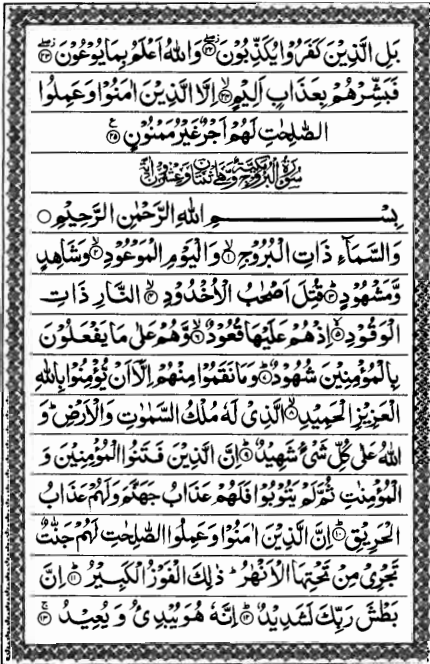 بَلِ الَّذِيْنَ كَفَرُوْا يُكَذِّبُوْنَ ۝۲۲ وَاللّٰهُ اَعْلَمُ بِمَا يُوْعُوْنَ ۝۲۳
فَبَشِّرْهُمْ بِعَذَابٍ اَلِيْمٍ ۝۲۴ اِلَّا الَّذِيْنَ اٰمَنُوْا وَعَمِلُوا
الصّٰلِحٰتِ لَهُمْ اَجْرٌ غَيْرُ مَمْنُوْنٍ ۝۲۵
سُوْرَةُ الْبُرُوْجِ مَكِّيَّةٌ وَّهِيَ ثِنْتَانِ وَعِشْرُوْنَ اٰيَةً
بِسْمِ اللّٰهِ الرَّحْمٰنِ الرَّحِيْمِ ۝
وَالسَّمَآءِ ذَاتِ الْبُرُوْجِ ۝۱ وَالْيَوْمِ الْمَوْعُوْدِ ۝۲ وَشَاهِدٍ
وَّمَشْهُوْدٍ ۝۳ قُتِلَ اَصْحٰبُ الْاُخْدُوْدِ ۝۴ النَّارِ ذَاتِ
الْوَقُوْدِ ۝۵ اِذْ هُمْ عَلَيْهَا قُعُوْدٌ ۝۶ وَّهُمْ عَلٰى مَا يَفْعَلُوْنَ
بِالْمُؤْمِنِيْنَ شُهُوْدٌ ۝۷ وَمَا نَقَمُوْا مِنْهُمْ اِلَّآ اَنْ يُّؤْمِنُوْا بِاللّٰهِ
الْعَزِيْزِ الْحَمِيْدِ ۝۸ الَّذِيْ لَهٗ مُلْكُ السَّمٰوٰتِ وَالْاَرْضِ ؕ وَ
اللّٰهُ عَلٰى كُلِّ شَيْءٍ شَهِيْدٌ ۝۹ اِنَّ الَّذِيْنَ فَتَنُوا الْمُؤْمِنِيْنَ وَ
الْمُؤْمِنٰتِ ثُمَّ لَمْ يَتُوْبُوْا فَلَهُمْ عَذَابُ جَهَنَّمَ وَلَهُمْ عَذَابُ
الْحَرِيْقِ ۝۱۰ اِنَّ الَّذِيْنَ اٰمَنُوْا وَعَمِلُوا الصّٰلِحٰتِ لَهُمْ جَنّٰتٌ
تَجْرِيْ مِنْ تَحْتِهَا الْاَنْهٰرُ ؕ ذٰلِكَ الْفَوْزُ الْكَبِيْرُ ۝۱۱ اِنَّ
بَطْشَ رَبِّكَ لَشَدِيْدٌ ۝۱۲ اِنَّهٗ هُوَ يُبْدِئُ وَيُعِيْدُ ۝۱۳